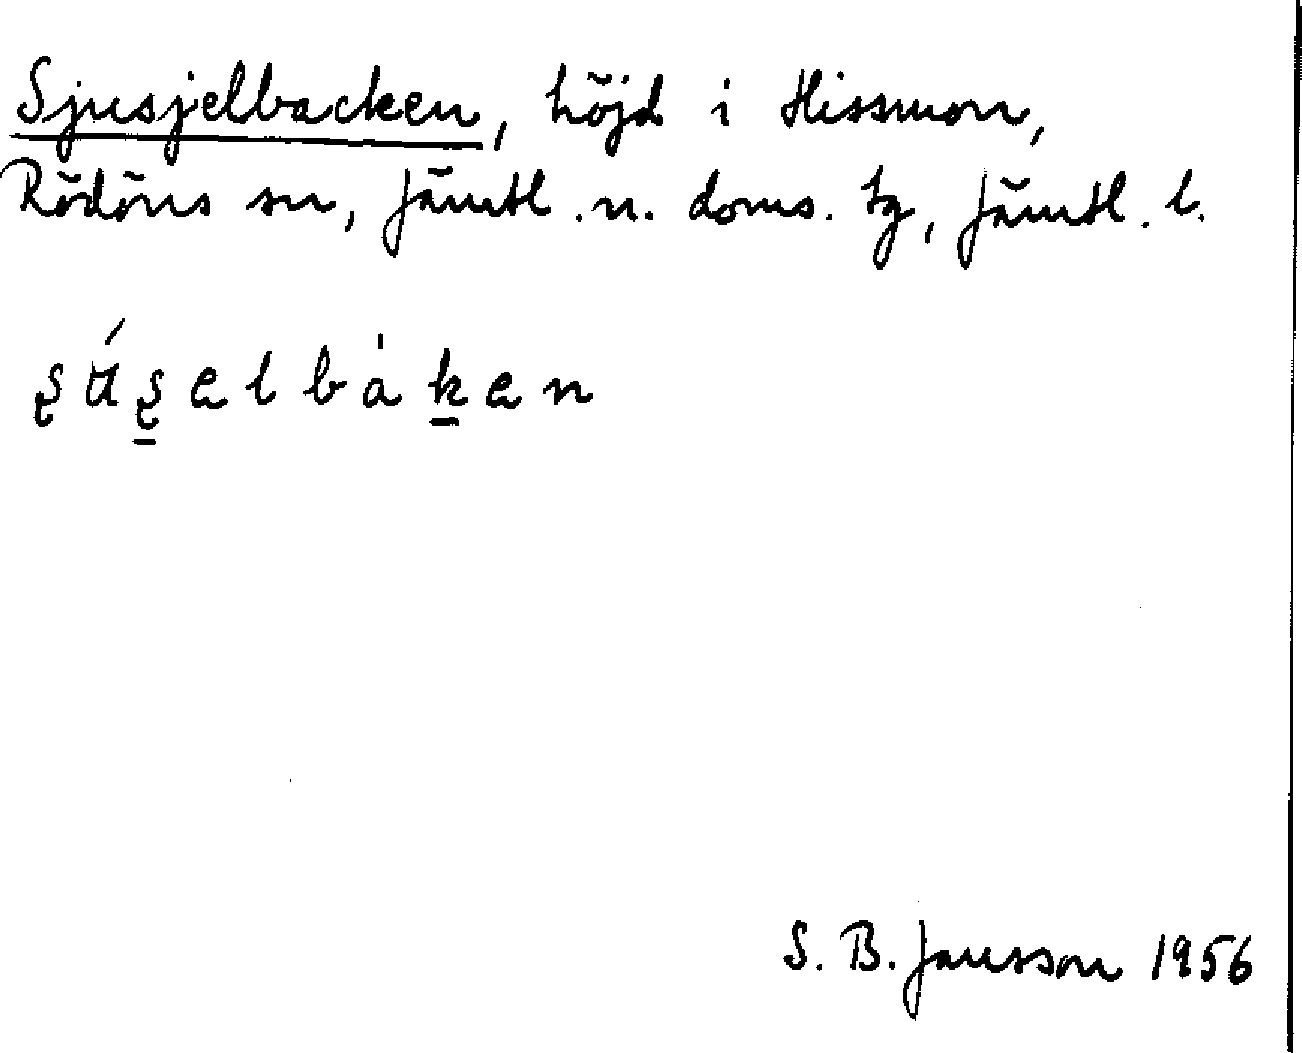 Sjusjelbacken, höjd i Hissmon,
Rödöns sn, Jämtl. n. doms. tg, Jämtl. l.
S. B. Jansson 1956